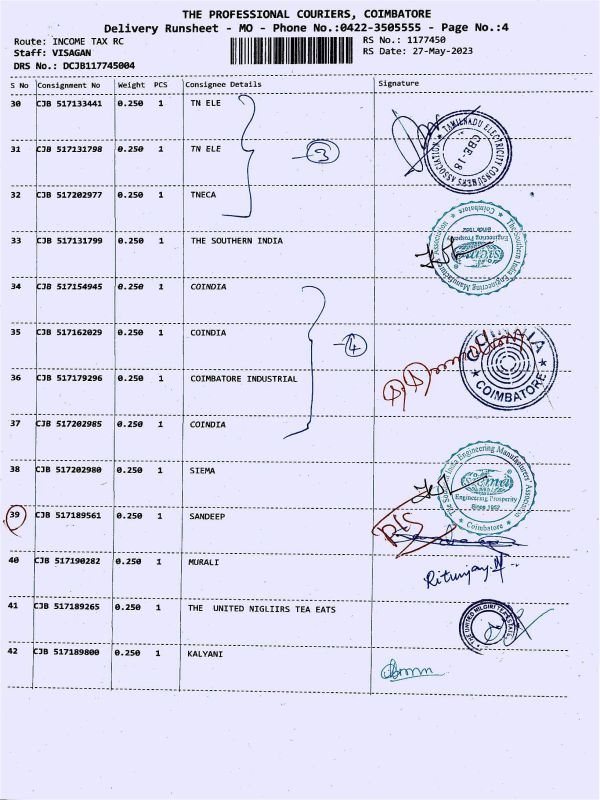 THE PROFESSIONAL COURIERS, COIMBATORE
Delivery Runsheet - MO - Phone No.:0422-3505555 - Page No.:4
Route: INCOME TAX RC
RS No.: 1177450
Staff: VISAGAN
RS Date: 27-May-2023
DRS No.: DCJB117745004
S No Consignment No Weight PCS Consignee Details Signature
30 CJB 517133441 0.250 1 TN ELE
31 CJB 517131798 0.250 1 TN ELE
3
TAMILNADU ELECTRICITY CONSUMERS ASSOCIATION
CBE-18
32 CJB 517202977 0.250 1 TNECA
33 CJB 517131799 0.250 1 THE SOUTHERN INDIA
The Southern India Engineering Manufacturers' Association
Coimbatore
Engineering Prosperity
Since 1952
siema
34 CJB 517154945 0.250 1 COINDIA
35 CJB 517162029 0.250 1 COINDIA
4
36 CJB 517179296 0.250 1 COIMBATORE INDUSTRIAL
COINDIA
COIMBATORE
37 CJB 517202985 0.250 1 COINDIA
38 CJB 517202980 0.250 1 SIEMA
India Engineering Manufacturers' Association
siema
Engineering Prosperity
Since 1952
Coimbatore
39 CJB 517189561 0.250 1 SANDEEP
R/S
40 CJB 517190282 0.250 1 MURALI
Ritunjay.N
41 CJB 517189265 0.250 1 THE UNITED NIGLIIRS TEA EATS
THE UNITED NILGIRI TEA ESTATES
42 CJB 517189800 0.250 1 KALYANI